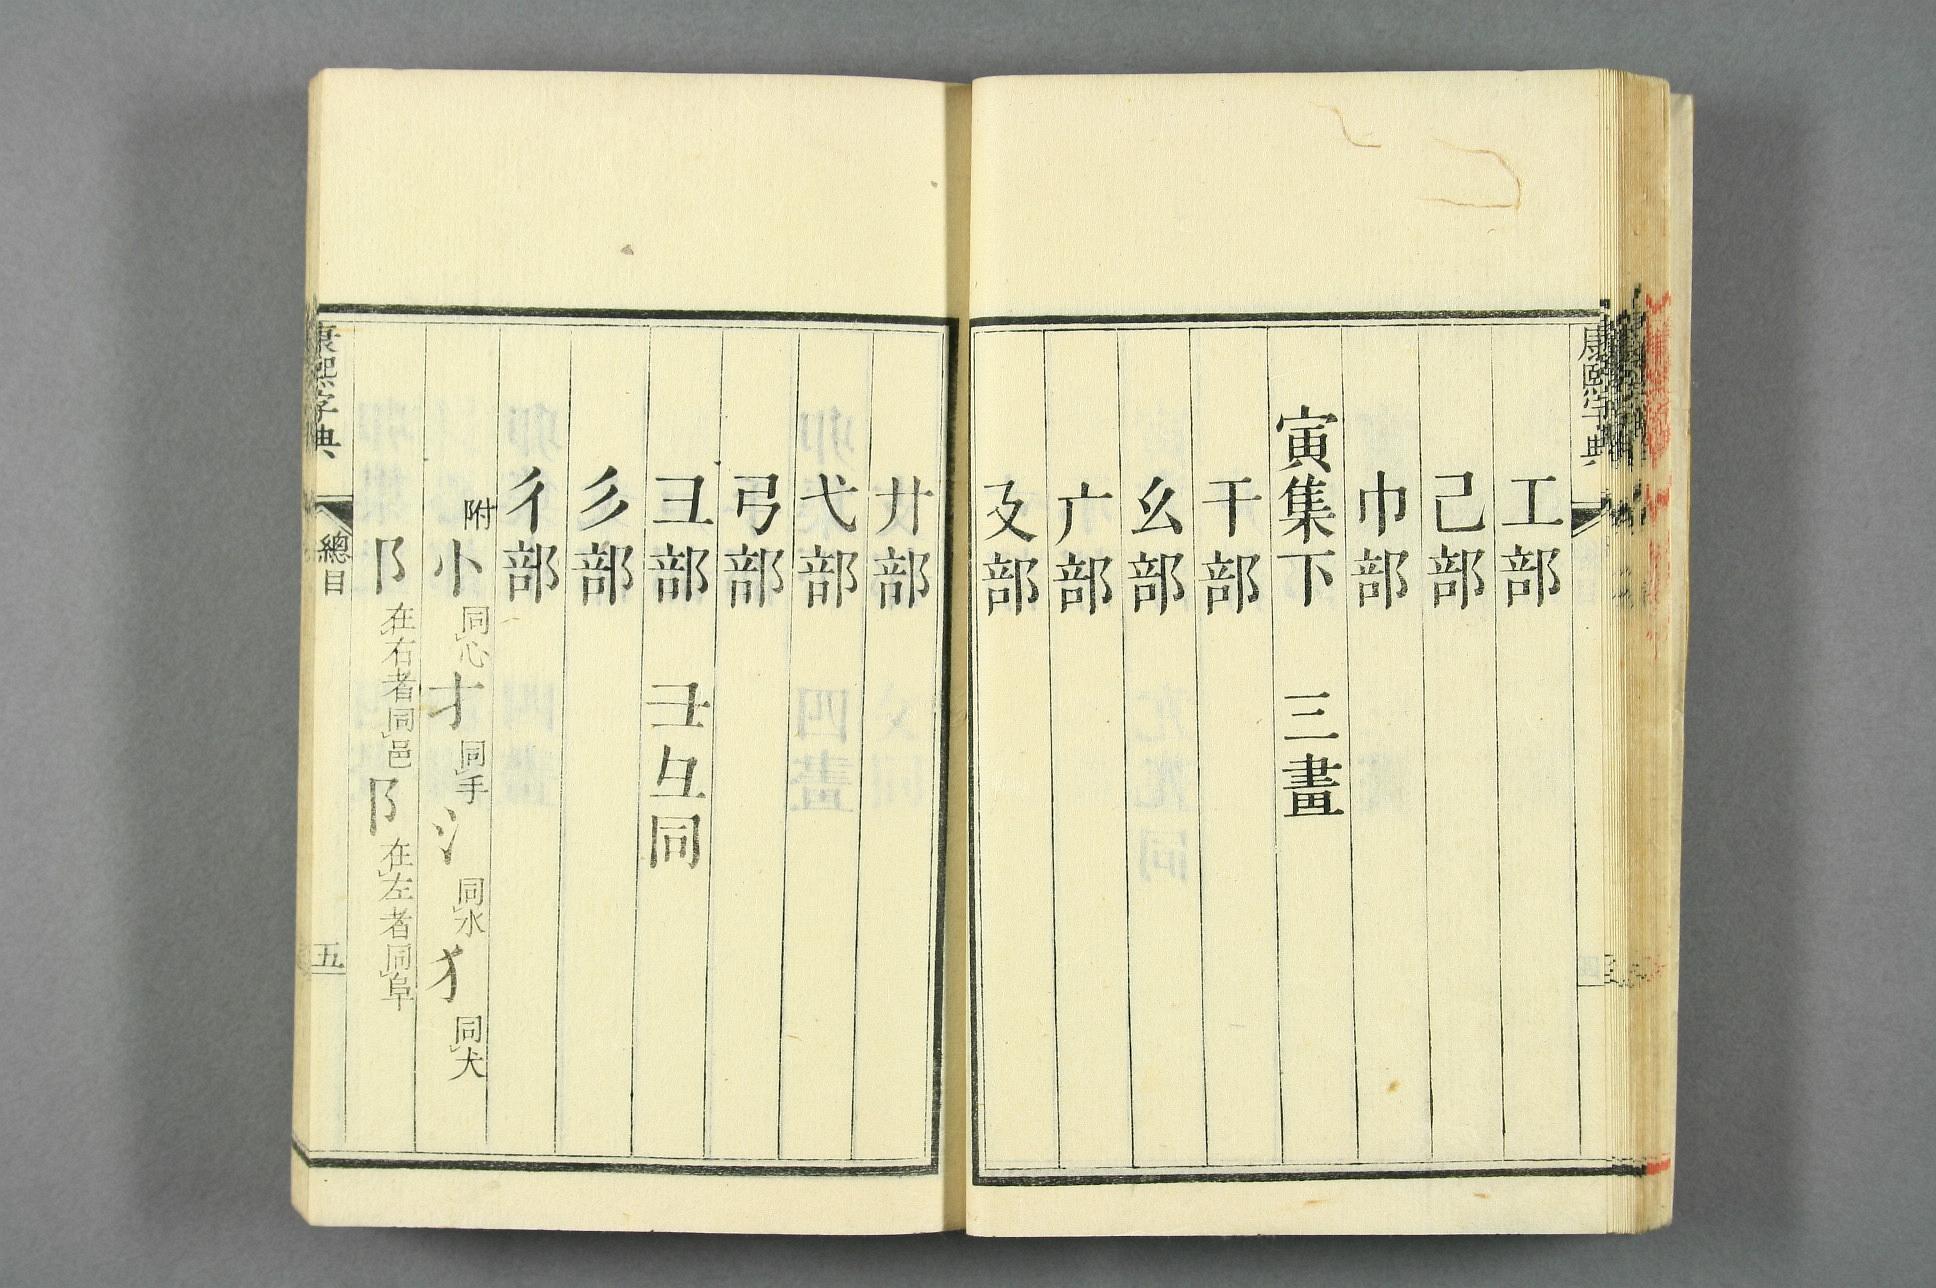 康熙字典
工部
己部
巾部
寅集下 三畫
干部
幺部
广部
廴部
廾部
弋部
弓部
彐部 彑彑同
彡部
彳部
附 忄同心 扌同手 氵同水 犭同犬
阝在右者同邑 阝在左者同阜
康熙字典 總目 五